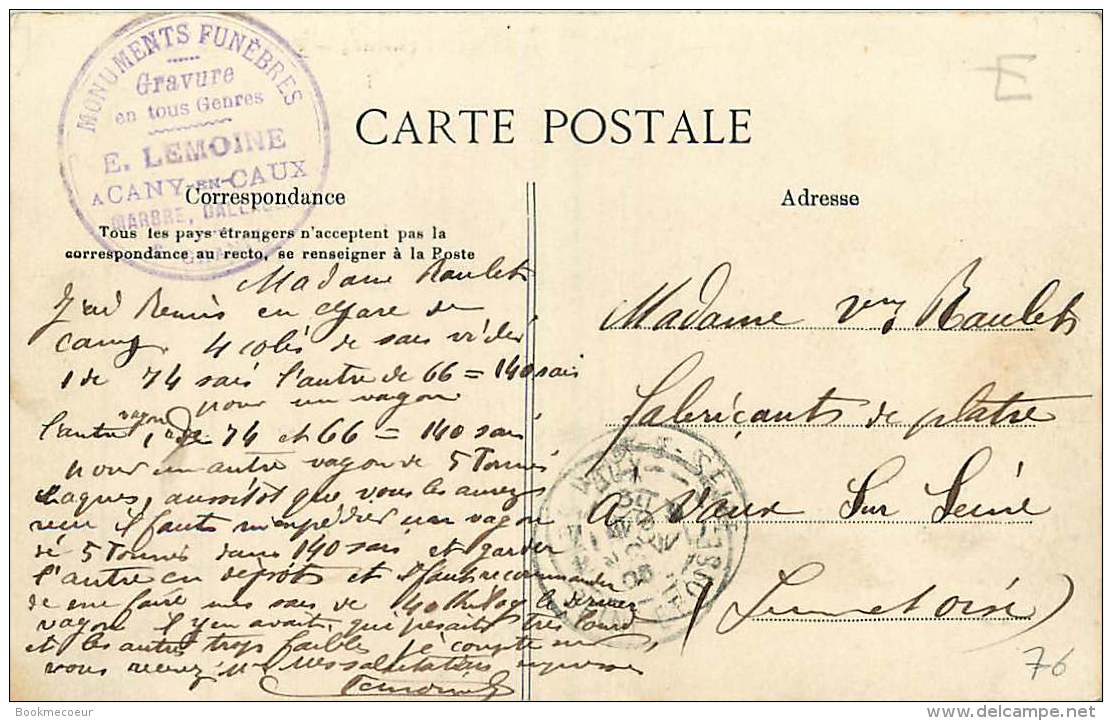 MONUMENTS FUNÈBRES
Gravure
en tous Genres
E. LEMOINE
A CANY-EN-CAUX
MARBRE,
E
CARTE POSTALE
Correspondance
Adresse
Tous les pays étrangers n'acceptent pas la
correspondance au recto, se renseigner à la Poste
Madame Raulet
J'ai Remis en Gare de
Cany 4 colés de sais vides
1 de 74 sais l'autre de 66 = 140 sais
pour un vagon
l'autre vagon 1 de 74 et 66 = 140 sais
pour un autre vagon de 5 Tonnes
chaques, aussitot que vous les aurez
recu il faut m'expédier un vagon
de 5 Tonnes dans 140 sais et garder
l'autre en depots et il faut recommander
de me faire mes sais de 40 Kilog le dernier
vagon il y en avait, qui pesait très lourd
et les autres trop faibles je compte en
vous recevez mes salutations
Lemoine
Madame Vve Raulet
fabriçants de platre
A Vaux Sur Seine
(Seine et Oise)
76
Bookmecoeur
www.delcampe.net